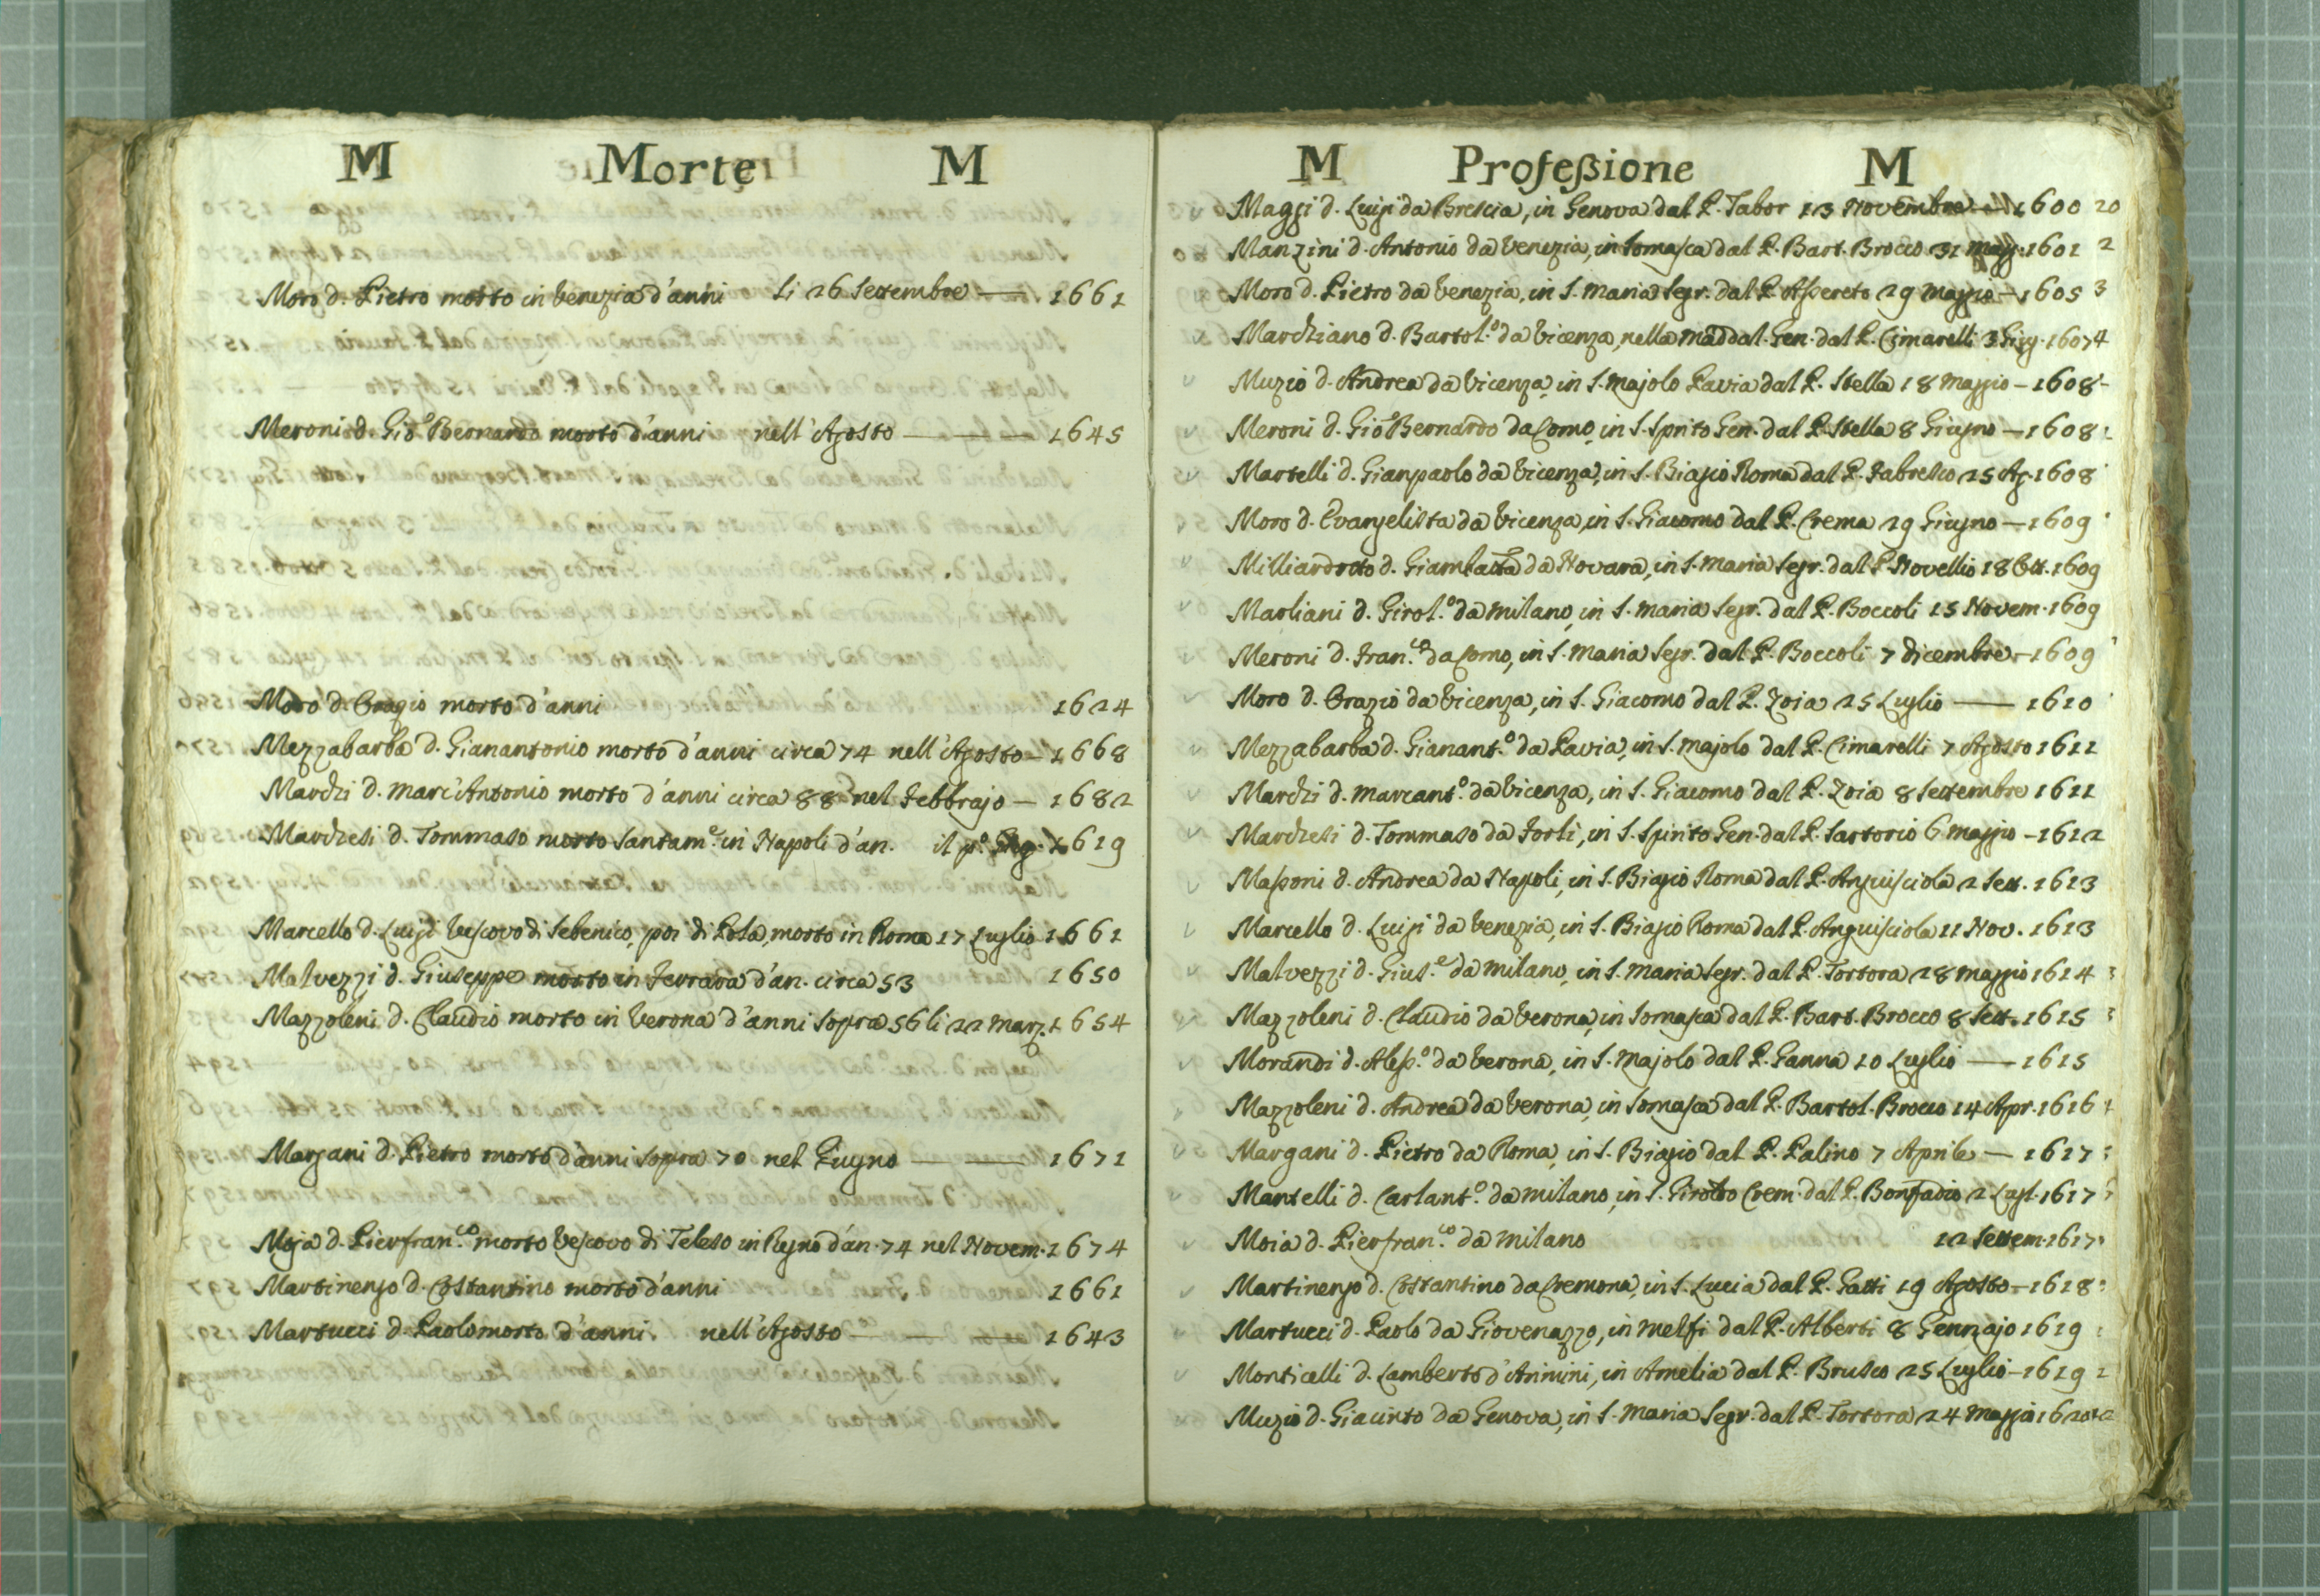 M Morte M
Moro d. Pietro morto in Venezia d'anni li 26 Settembre — 1661
Meroni d. Gio. Bernardo morto d'anni nell'Agosto — — — 1645
Moro d. Orazio morto d'anni 1624
Mezzabarba d. Gianantonio morto d'anni circa 74 nell'Agosto — 1668
Marchi d. Marc'Antonio morto d'anni circa 88 nel Febbrajo — 1682
Marchesi d. Tommaso morto santam.e in Napoli d'an. il p.o 1619
Marcello d. Luigi Vescovo di Sebenico, poi di Pola, morto in Roma 17 Luglio 1661
Malvezzi d. Giuseppe morto in Ferrara d'an. circa 53 1650
Mazzoleni d. Claudio morto in Verona d'anni sopra 56 li 22 Marz. 1654
Margani d. Pietro morto d'anni sopra 70 nel Giugno — — 1671
Moja d. Pierfran.co morto Vescovo di Teleso in Regno d'an. 74 nel Novem. 1674
Martinengo d. Costantino morto d'anni 1661
Martucci d. Paolo morto d'anni nell'Agosto — — — 1643
M Professione M
Maggi d. Luigi da Brescia, in Genova dal P. Tabor 13 Novembre — 1600
Manzini d. Antonio da Venezia, in Somasca dal P. Bart. Brocco 31 Magg. 1601
Moro d. Pietro da Venezia, in S. Maria Segr. dal P. Aspereto 29 Maggio — 1605
Marchiano d. Bartol.o da Vicenza, nella Maddal. Gen. dal P. Cimarelli 3 Giug. 1607
Muzio d. Andrea da Vicenza, in S. Majolo Pavia dal P. Stella 18 Maggio — 1608
Meroni d. Gio. Bernardo da Como, in S. Spirito Gen. dal P. Stella 8 Giugno — 1608
Martelli d. Gianpaolo da Vicenza, in S. Biagio Roma dal P. Fabresco 25 Ag. 1608
Moro d. Evangelista da Vicenza, in S. Giacomo dal P. Crema 29 Giugno — 1609
Milliardotto d. Giambatta da Novara, in S. Maria Segr. dal P. Novellio 18 Ott. 1609
Marliani d. Girol.o da Milano, in S. Maria Segr. dal P. Boccoli 15 Novem. 1609
Meroni d. Fran.co da Como, in S. Maria Segr. dal P. Boccoli 7 dicembre — 1609
Moro d. Orazio da Vicenza, in S. Giacomo dal P. Zoia 25 Luglio — 1610
Mezzabarba d. Gianant.o da Pavia, in S. Majolo dal P. Cimarelli 7 Agosto 1611
Marchi d. Marcant.o da Vicenza, in S. Giacomo dal P. Zoia 8 Settembre 1611
Marchesi d. Tommaso da Forlì, in S. Spirito Gen. dal P. Sartorio 6 Maggio — 1612
Massoni d. Andrea da Napoli, in S. Biagio Roma dal P. Anguisciola 2 Sett. 1613
Marcello d. Luigi da Venezia, in S. Biagio Roma dal P. Anguisciola 11 Nov. 1613
Malvezzi d. Gius.e da Milano, in S. Maria Segr. dal P. Tortora 28 Maggio 1614
Mazzoleni d. Claudio da Verona, in Somasca dal P. Bart. Brocco 8 Sett. 1615
Morandi d. Aless.o da Verona, in S. Majolo dal P. Ganna 10 Luglio — 1615
Mazzoleni d. Andrea da Verona, in Somasca dal P. Bartol. Brocco 14 Apr. 1616
Margani d. Pietro da Roma, in S. Biagio dal P. Palino 7 Aprile — 1617
Mantelli d. Carlant.o da Milano, in S. Girol.o Crem. dal P. Bonfadio 2 Lugl. 1617
Moia d. Pierfran.co da Milano 12 Settem. 1617
Martinengo d. Costantino da Cremona, in S. Lucia dal P. Gatti 19 Agosto — 1618
Martucci d. Paolo da Giovenazzo, in Melfi dal P. Alberti 8 Gennajo 1619
Monticelli d. Lamberto d'Arimini, in Amelia dal P. Brusco 25 Luglio — 1619
Muzio d. Giacinto da Genova, in S. Maria Segr. dal P. Tortora 24 Maggio 1620